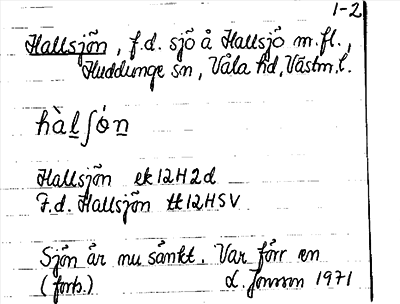 1-2
Hallsjön, f.d. sjö å Hallsjö m.fl.,
Huddunge sn, Våla hd, Västm. l.
hàl̲ʃón̲
Hallsjön ek 12H2d
F.d. Hallsjön tk 12HSV
Sjön är nu sänkt. Var förr en
(forts.) L. Jonson 1971